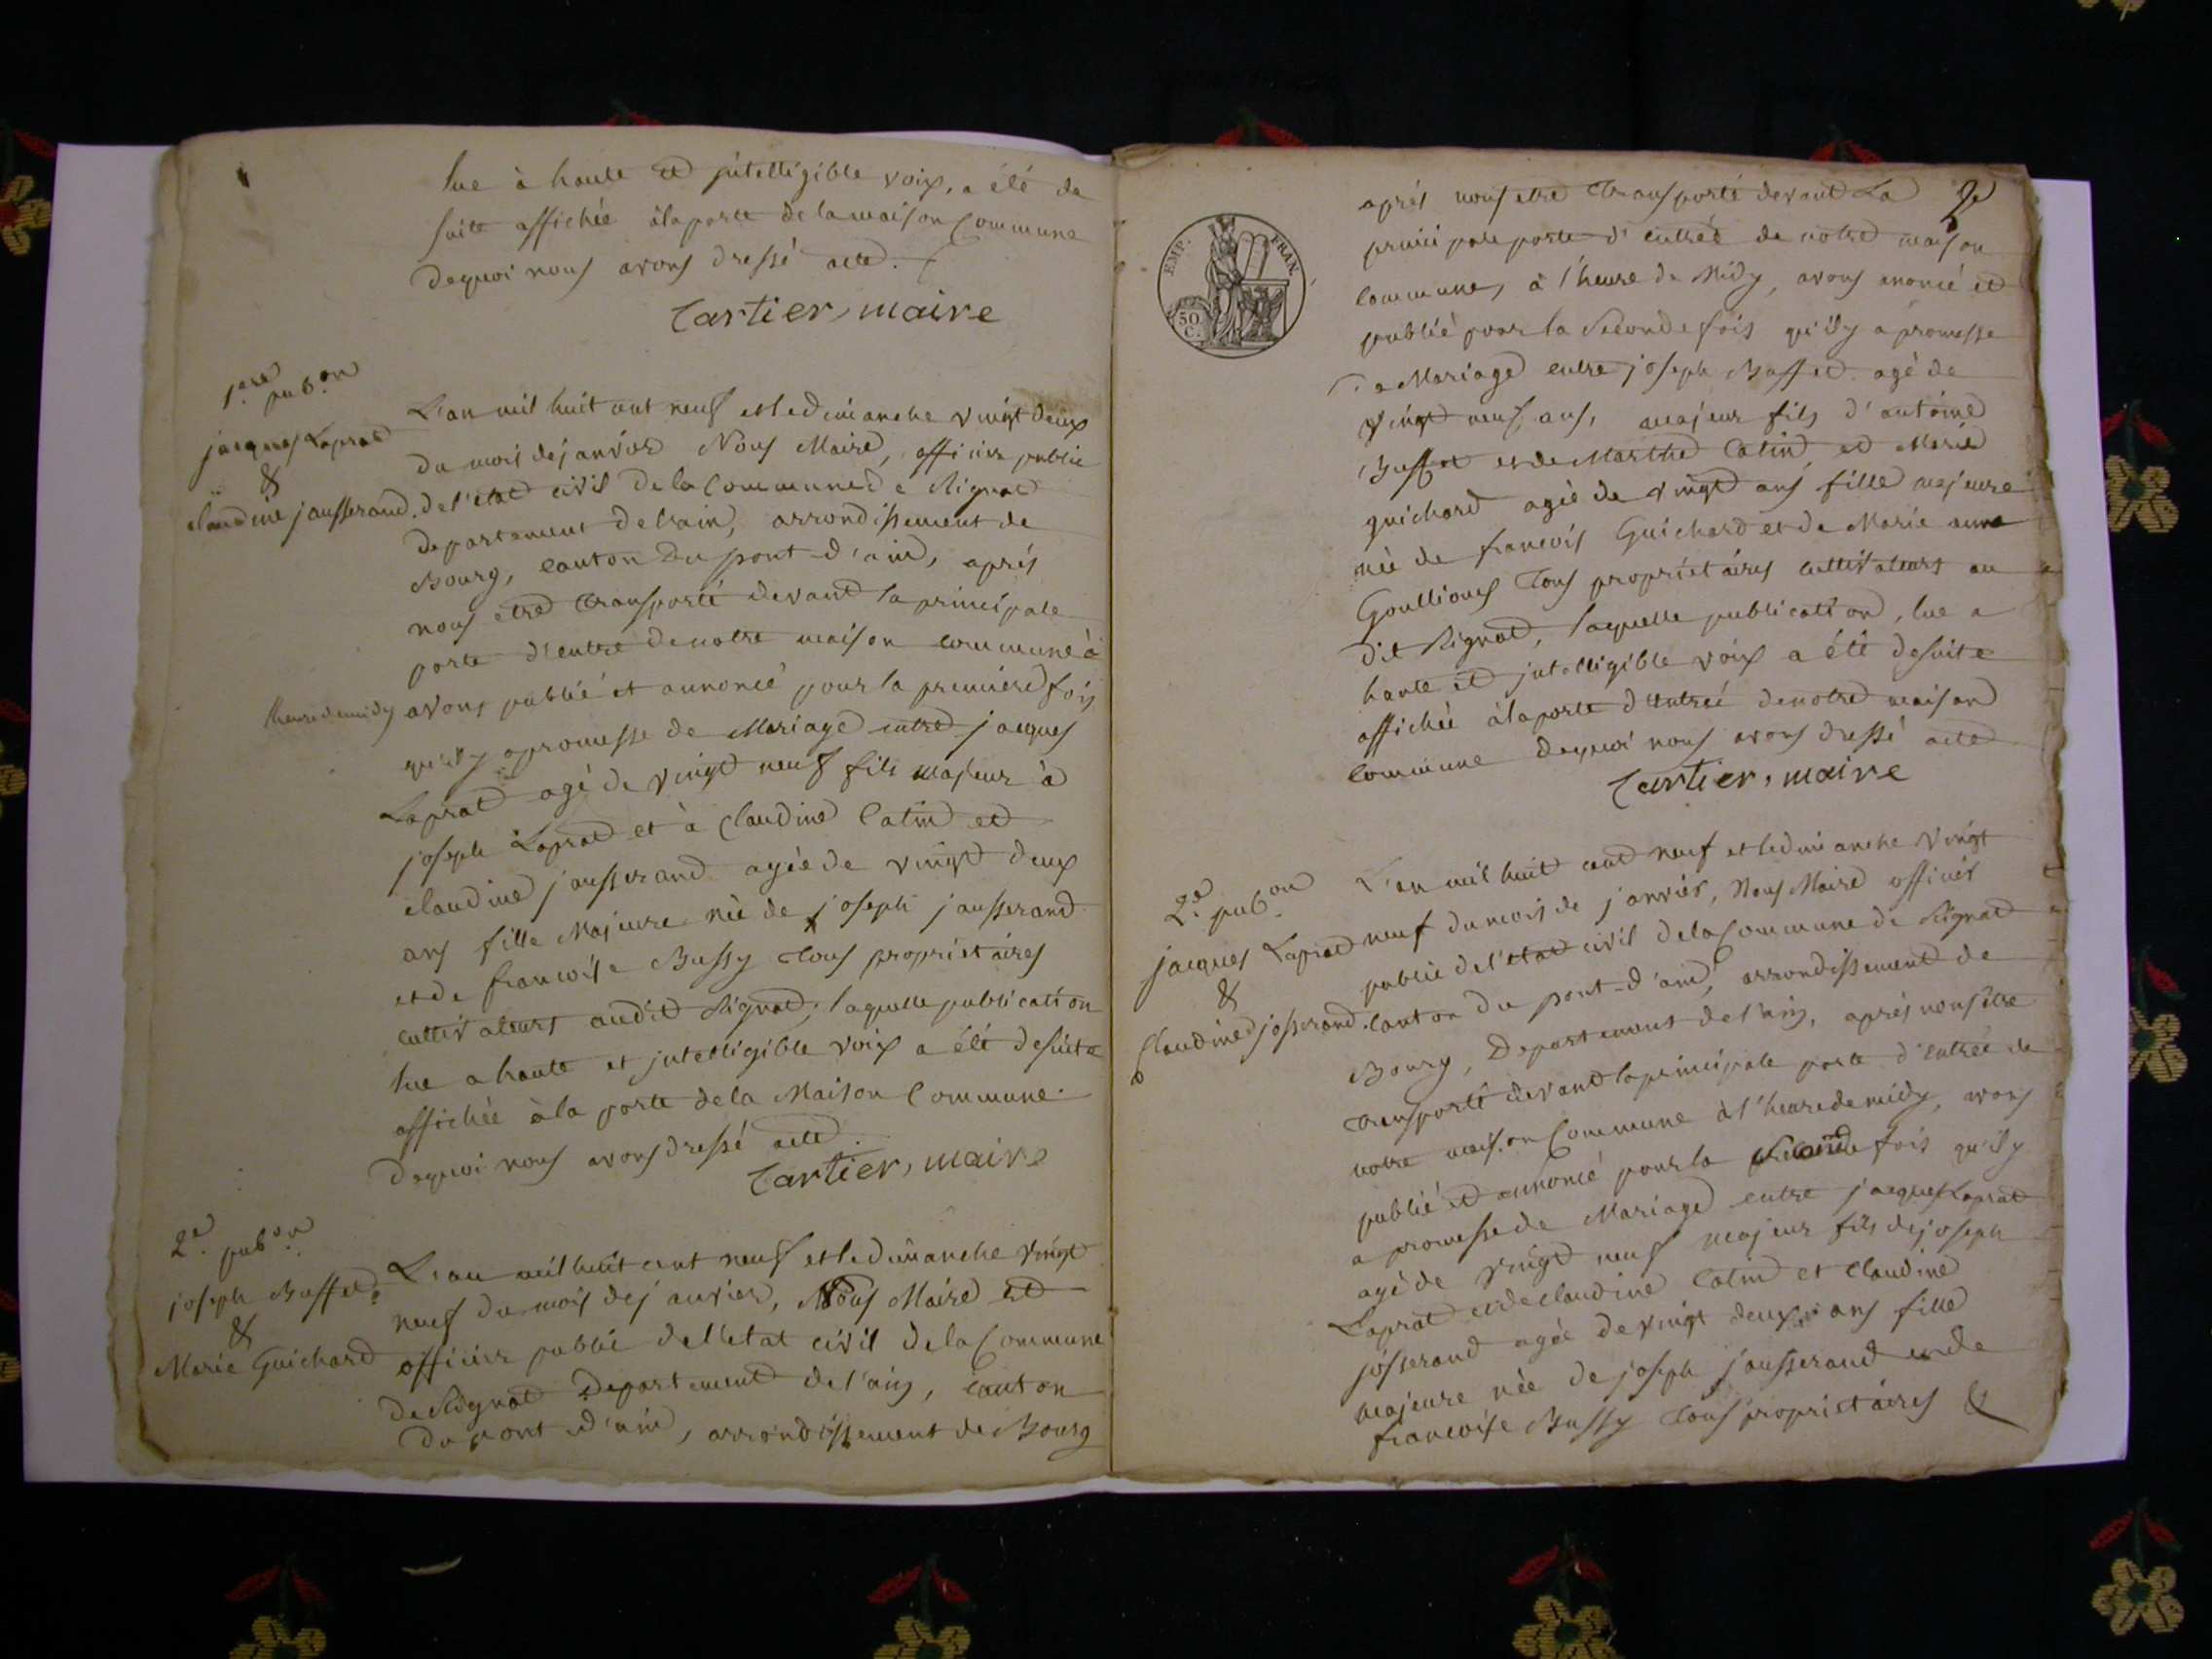 lue à haute et jntelligible voix, a été de
suite affichée à la porte de la maison Commune
dequoi nous avons dressé acte.
Cartier, maire
1.ere pub.on
jacques Laprat
&
claudine jausserand.
L'an mil huit cent neuf et le dimanche vingt deux
du mois de janvier Nous Maire, officier public
de l'etat civil de la Commune de Rignat
departement de l'ain, arrondissement de
Bourg, canton du pont-d'ain, après
nous etre transporté devant la principale
porte d'entre de notre maison commune à
l'heure de midy avons publié et annoncé pour la premiere fois
qu'ily a promesse de Mariage entre jacques
Laprat agé de vingt neuf fils majeur à
joseph Laprat et à Claudine Catin et
claudine jausserand agée de vingt deux
ans fille Majeure née de joseph jausserand
et de francoise Bussy tous propriétaires
cultivateurs audit Rignat, laquelle publication
lue a haute et jntelligible voix a été desuite
affichée à la porte de la Maison Commune.
dequoi nous avons dressé acte.
Cartier, maire
2.e pub.on
joseph Buffet
&
Marie Guichard
L'an mil huit cent neuf et le dimanche vingt
neuf du mois de janvier, Nous Maire et
officier public de l'etat civil de la Commune
de Rignat Departement de l'ain, canton
du pont d'ain, arrondissement de Bourg
2e
EMP. FRAN.
50 C.
après nous etre transporté devant La
principale porte d'entrée de notre maison
commune, à l'heure de Midy, avons enoncé et
publié pour la Seconde fois qu'ily a promesse
de Mariage entre joseph Buffet agé de
vingt neuf ans, majeur fils d'antoine
Buffet et de Marthe Catin et Marie
guichard agée de vingt ans fille majeure
née de francois Guichard et de Marie anne
Goullioues tous propriétaires cultivateurs au
dit Rignat, laquelle publication, lue a
haute et jntelligible voix a été desuite
affichée à la porte d'entrée denotre maison
commune dequoi nous avons dressé acte
Cartier, maire
2.e pub.on
jacques Laprat
&
Claudine josserand.
L'an mil huit cent neuf et le dimanche vingt
neuf du mois de janvier, Nous Maire officier
public de l'etat civil de la Commune de Rignat
canton du pont-d'ain, arrondissement de
Bourg, Departement de l'ain, après nous être
transporté devant la principale porte d'entrée de
notre maison Commune à l'heure de midy, avons
publié et annoncé pour la seconde fois qu'ily
a promesse de Mariage entre jacques Laprat
agé de vingt neuf majeur fils de joseph
Laprat et de claudine Catin et claudine
josserand agée de vingt deux ans fille
majeure née de joseph jausserand et de
francoise Bussy tous propriétaires &